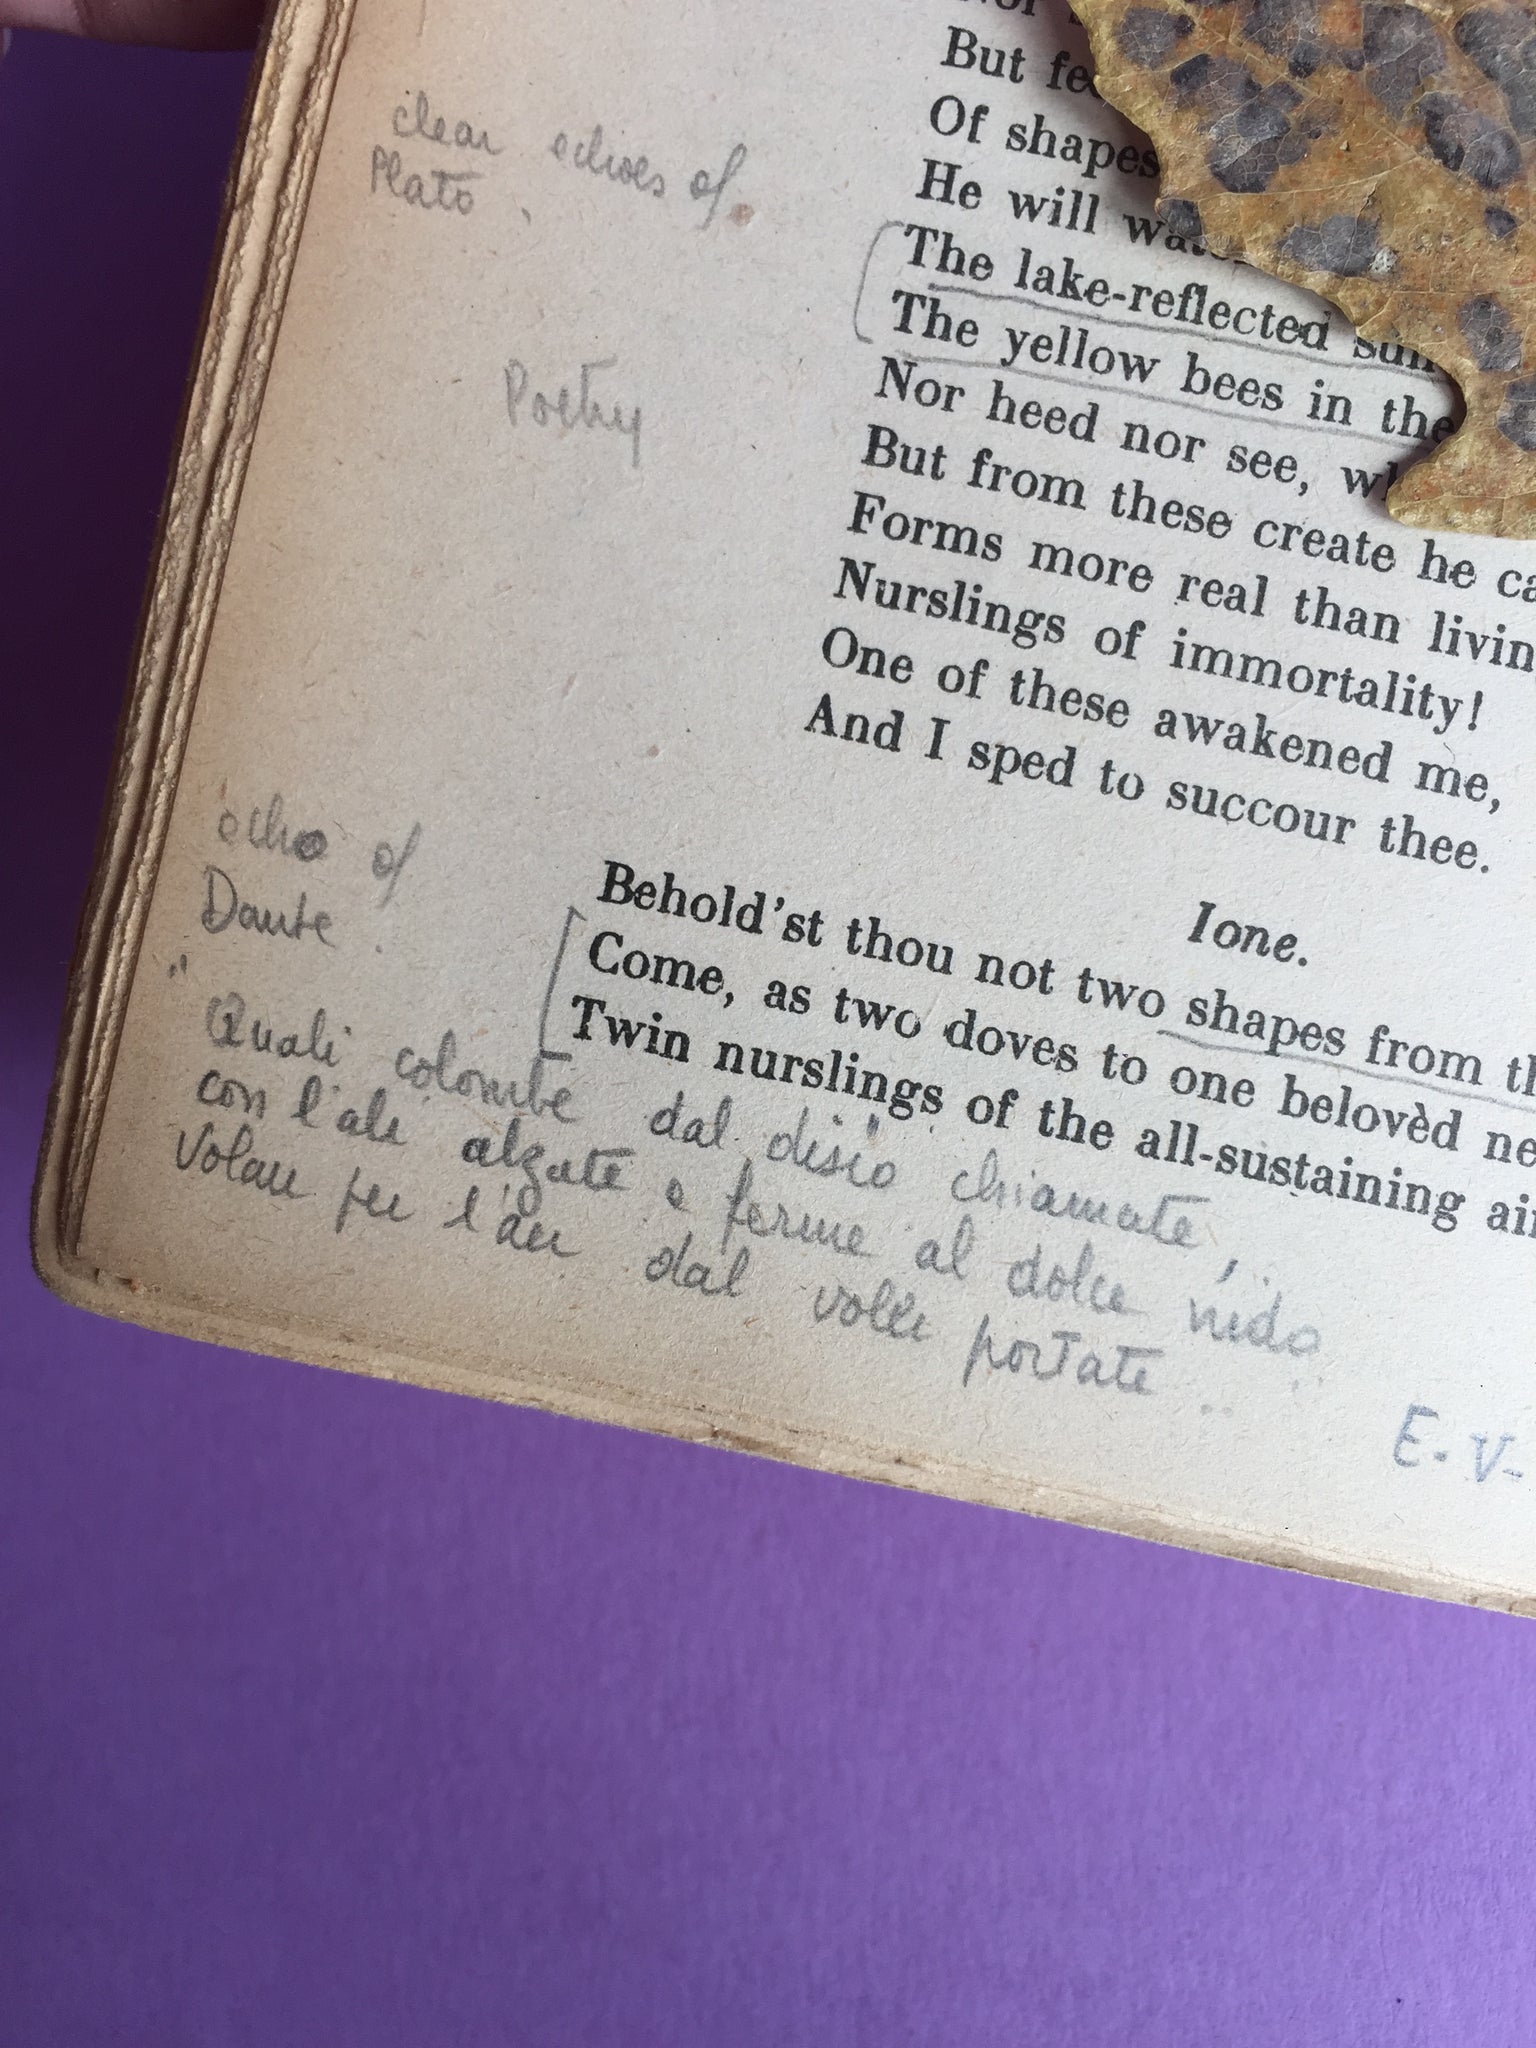 But
Of shapes
He will
The lake-reflected sun
The yellow bees in the
Nor heed nor see,
But from these create he
Forms more real than
Nurslings of immortality!
One of these awakened me,
And I sped to succour thee.
Ione.
Behold'st thou not two shapes from
Come, as two doves to one belovèd
Twin nurslings of the all-sustaining
clear echoes of
Plato.
Poetry
echo of
Dante.
"Quali colombe dal disio chiamate,
con l'ali alzate e ferme al dolce nido
volan per l'aer dal voler portate
E. V.